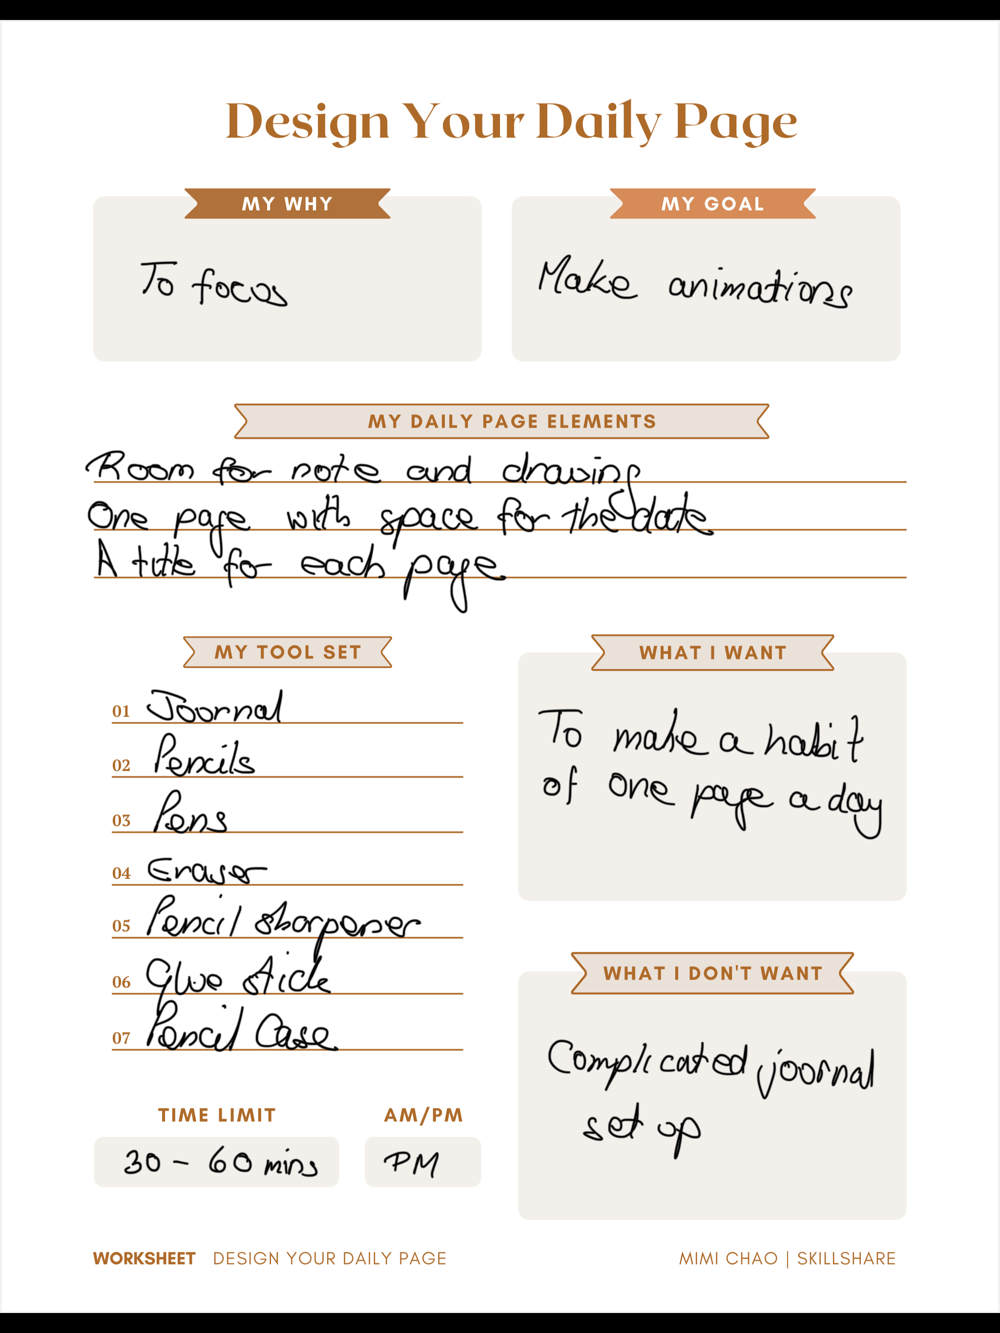 Design Your Daily Page
MY WHY
To focus
MY GOAL
Make animations
MY DAILY PAGE ELEMENTS
Room for note and drawing
One page with space for the date
A title for each page
MY TOOL SET
01 Journal
02 Pencils
03 Pens
04 Eraser
05 Pencil sharpener
06 Glue stick
07 Pencil Case
TIME LIMIT
30 - 60 mins
AM/PM
PM
WHAT I WANT
To make a habit
of one page a day
WHAT I DON'T WANT
Complicated journal
set up
WORKSHEET DESIGN YOUR DAILY PAGE
MIMI CHAO | SKILLSHARE